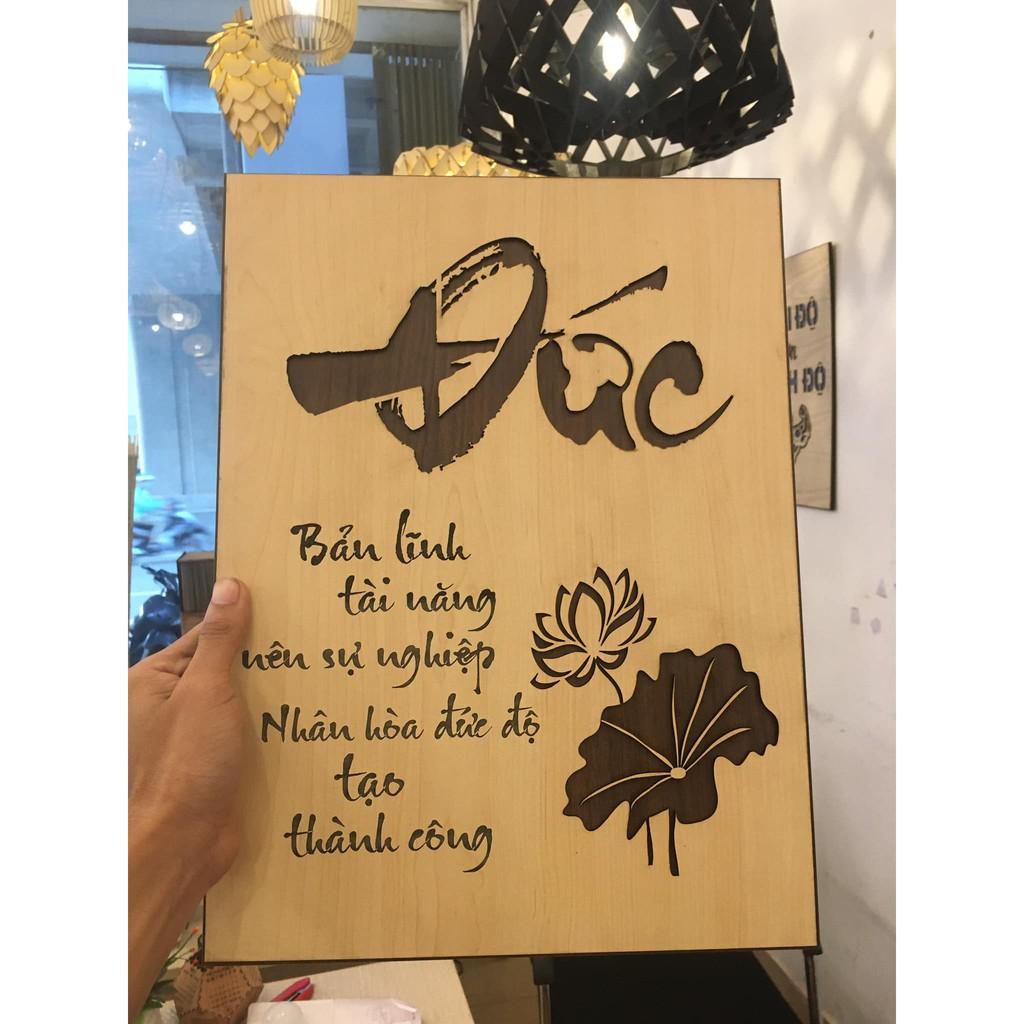 Đức
Bản lĩnh
tài năng
nên sự nghiệp
Nhân hòa đức độ
tạo
thành công
ĐỘ
ĐỘ